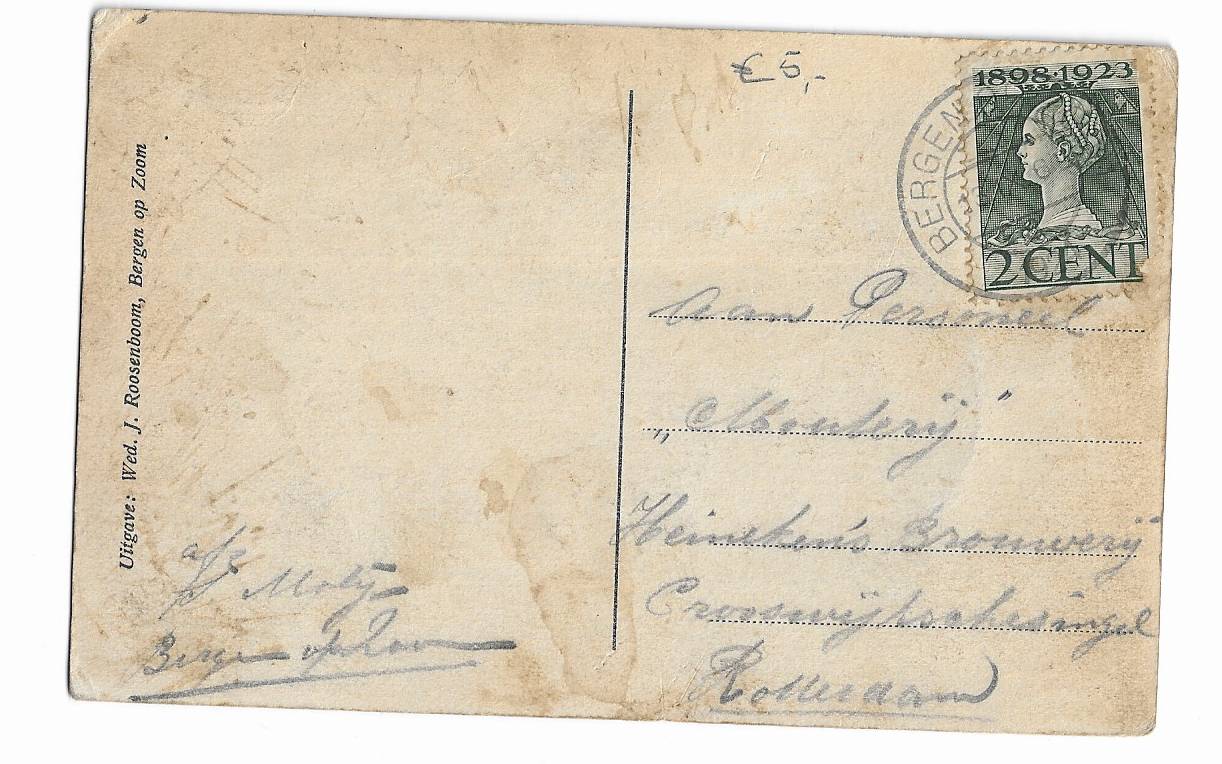 € 5,-
1898·1923
2 CENT
BERGEN
Uitgave: Wed. J. Roosenboom, Bergen op Zoom
Aan Personeel
„Mouterij"
Heineken's Brouwerij
Crooswijkschesingel
Rotterdam
a/z
Bergen op Zoom